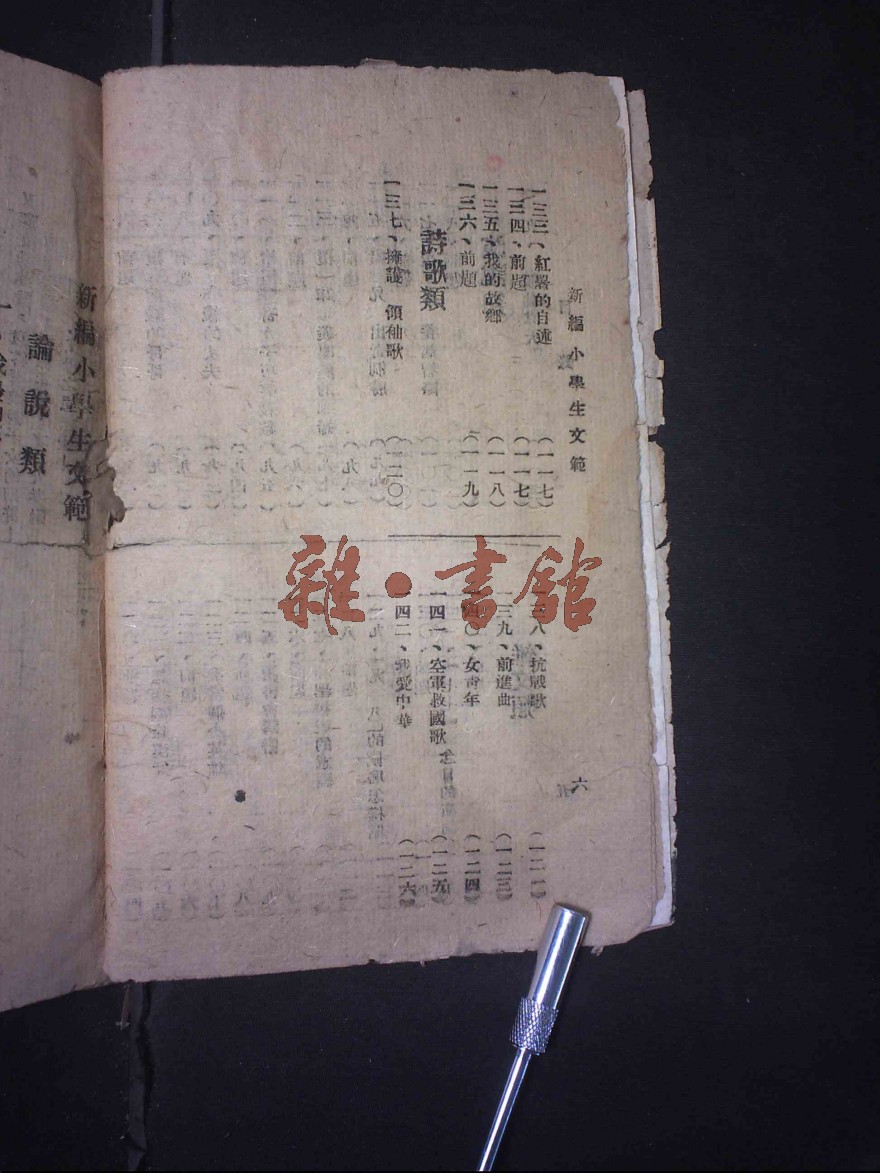 新編小學生文範
六
一三三、紅薯的自述（一一七）
一三四、前題（一一七）
一三五、我的故鄉（一一八）
一三六、前題（一一九）
詩歌類
一三七、擁護　領袖歌（一二〇）
一三八、抗戰歌
一三九、前進曲（一二三）
一四〇、女青年（一二四）
一四一、空軍救國歌（一二五）
一四二、我愛中華（一二六）
雜·書館
新編小學生文範
論說類